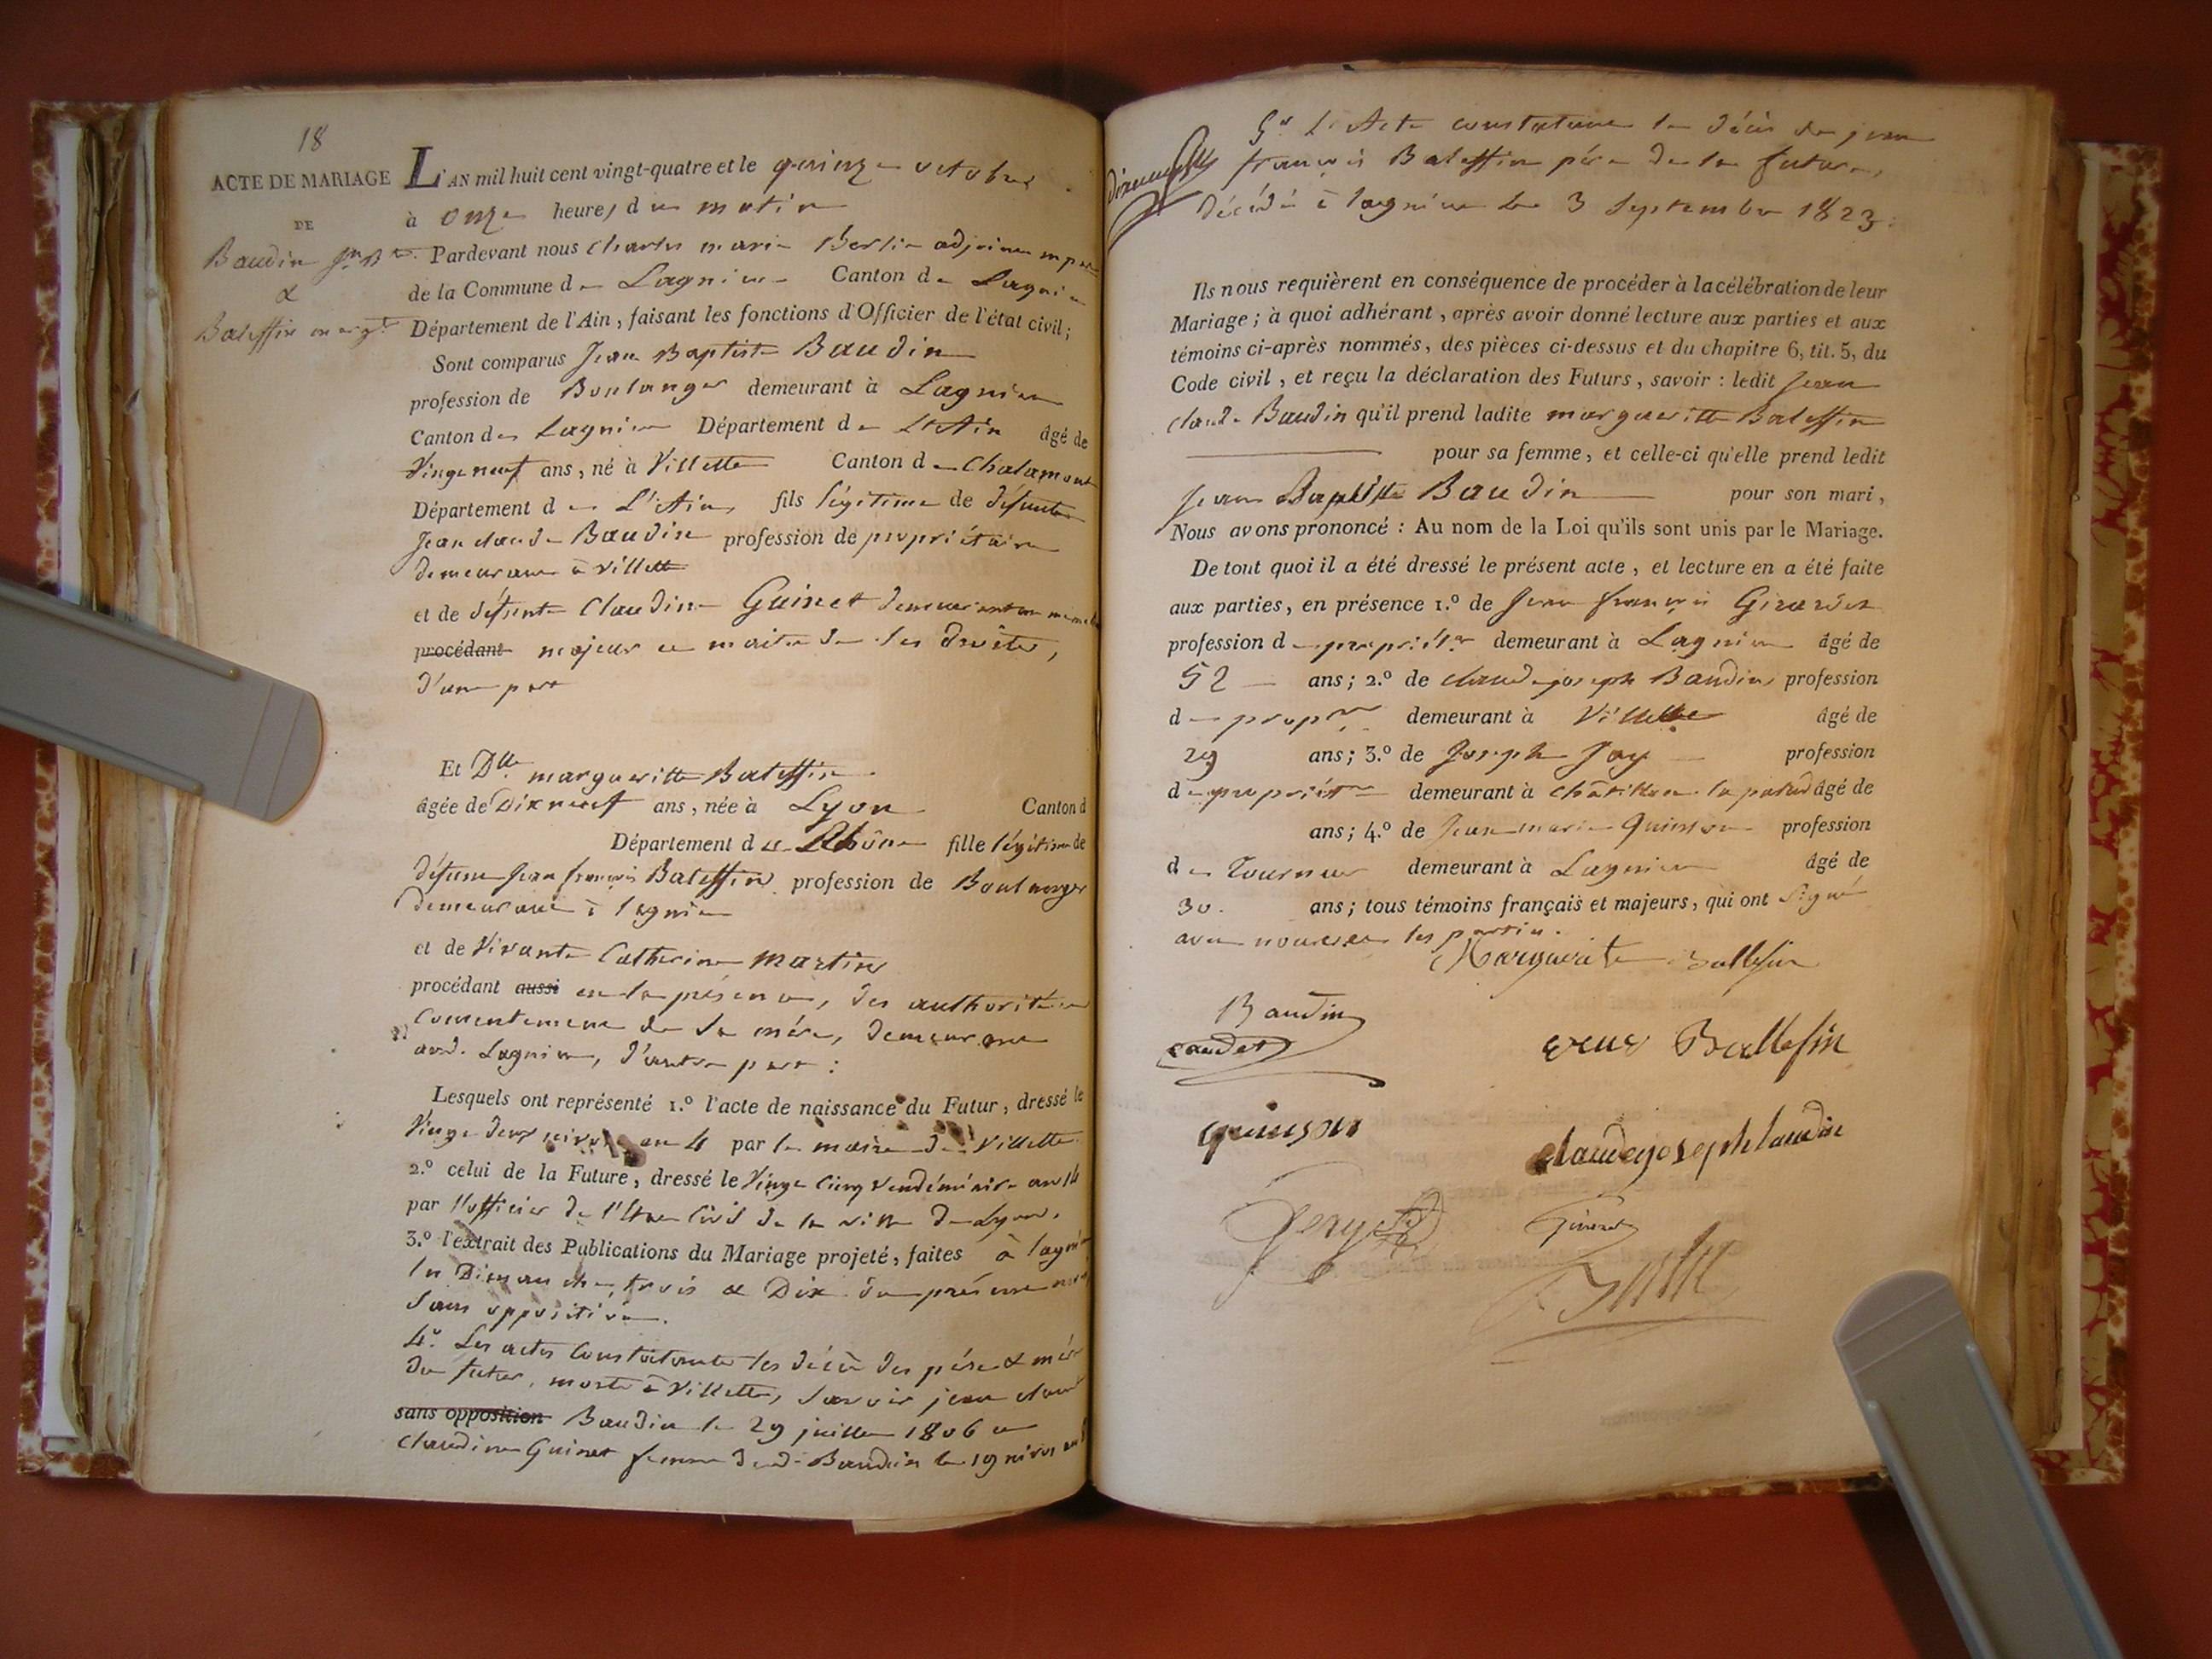 18
ACTE DE MARIAGE
DE
Baudin Jn Bte
&
Baleffin margte
L'AN mil huit cent vingt-quatre et le quinze octobre
à onze heures du matin
Pardevant nous Charles marie Berlie adjoint
de la Commune de Lagnieu Canton de Lagnieu
Département de l'Ain, faisant les fonctions d'Officier de l'état civil;
Sont comparus Jean Baptiste Baudin
profession de Boulanger demeurant à Lagnieu
Canton de Lagnieu Département de L'Ain âgé de
Vingt neuf ans, né à Villette Canton de Chalamont
Département de L'Ain fils légitime de défunts
Jean claude Baudin profession de propriétaire
demeurant à Villette
et de défunte Claudine Guinet demeurant
procédant majeur et maitre de ses droits,
d'une part
Et Dlle margueritte Baleffin
âgée de Dixneuf ans, née à Lyon Canton d
Département du Rhône fille légitime de
défunt Jean françois Baleffin profession de Boulanger
demeurant à lagnieu
et de Vivante Catherine Martin
procédant aussi en la présence, des authorité et
consentement de sa mère, demeurant
aud. Lagnieu, d'autre part :
Lesquels ont représenté 1.º l'acte de naissance du Futur, dressé le
Vingt deux nivose an 4 par le maire de Villette
2.º celui de la Future, dressé le Vingt cinq vendémiaire an 14
par l'officier de l'Etat Civil de la ville de Lyon.
3.º l'extrait des Publications du Mariage projeté, faites à lagnieu
les Dimanches, trois & Dix du présent mois
sans opposition.
4º Les actes constatant les décès des père & mère
du futur, morts à Villette, savoir jean claude
sans opposition Baudin le 29 juillet 1806 et
claudine Guinet femme dud. Baudin le 19 nivose an
5º L'Acte constatant le décès de jean
françois Baleffin père de la future,
décédé à lagnieu le 3 Septembre 1823.
Ils nous requièrent en conséquence de procéder à la célébration de leur
Mariage; à quoi adhérant, après avoir donné lecture aux parties et aux
témoins ci-après nommés, des pièces ci-dessus et du chapitre 6, tit. 5, du
Code civil, et reçu la déclaration des Futurs, savoir : ledit Jean
claude Baudin qu'il prend ladite margueritte Baleffin
pour sa femme, et celle-ci qu'elle prend ledit
Jean Baptiste Baudin pour son mari,
Nous avons prononcé : Au nom de la Loi qu'ils sont unis par le Mariage.
De tout quoi il a été dressé le présent acte, et lecture en a été faite
aux parties, en présence 1.º de Jean françois Girardet
profession de propriétre demeurant à Lagnieu âgé de
52 ans; 2.º de claude joseph Baudin profession
de propre demeurant à Villette âgé de
29 ans; 3.º de Joseph Joy profession
de propriétre demeurant à châtillon la palud âgé de
ans; 4.º de Jean marie Quinson profession
de Tourneur demeurant à Lagnieu âgé de
30. ans; tous témoins français et majeurs, qui ont Signé
avec nous et les parties.
Marguerite Ballefin
Baudin
veuve Ballefin
quinson
claudejosephbaudin